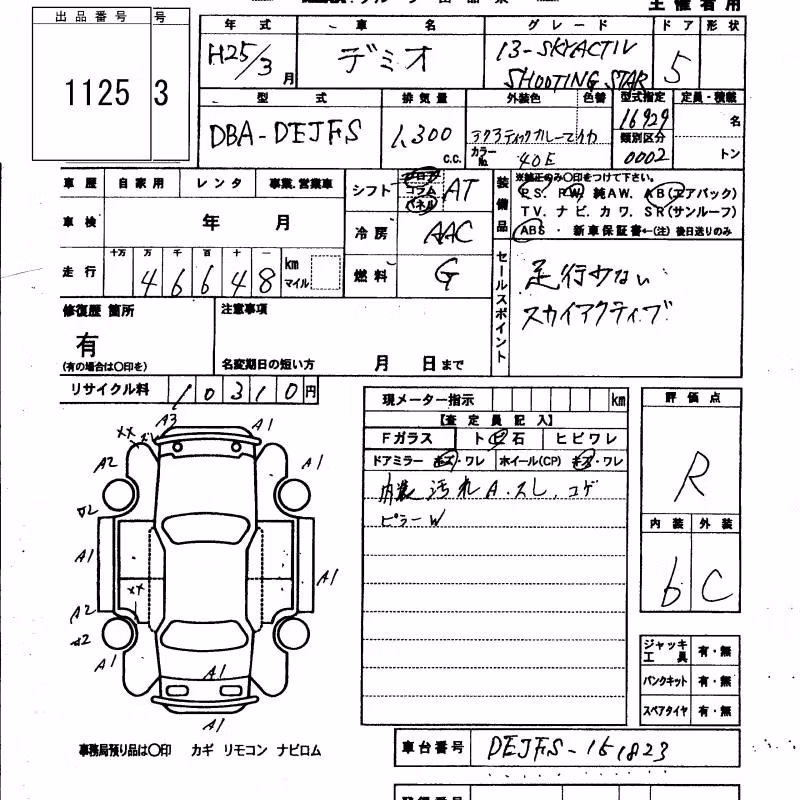 主催者用
出品番号 号
1125 3
年式 車名 グレード ドア 形状
H25/3月 デミオ 13-SKYACTIV
SHOOTING STAR 5
型式 排気量 外装色 色替 型式指定 定員・積載
DBA-DEJFS 1,300 c.c. 16929 名
カラーNo. 40E 類別区分 0002 トン
車歴 自家用 レンタ 事業.営業車
シフト フロア コラム パネル AT
装備品 ※純正のみ〇印をつけて下さい。
P.S. P.W. 純AW. A.B(エアバック)
TV. ナビ. カワ. SR(サンルーフ)
ABS・新車保証書←(注)後日送りのみ
車検 年 月
冷房 AAC
走行 十万 万 千 百 十 一
46648 km マイル
燃料 G
セールスポイント
走行少ない
スカイアクティブ
修復歴 箇所
有
(有の場合は〇印を)
注意事項
名変期日の短い方 月 日まで
リサイクル料 10310円
現メーター指示 km
【査定員記入】
Fガラス ト ビ 石 ヒビワレ
ドアミラー キズ・ワレ ホイール(CP) キズ・ワレ
内装 汚れA.スレ.コゲ
ピラーW
評価点
R
内装 外装
b C
A3 A1
XX
A2 A1
A1
A1
A2
XX
A1
A1
A1
ジャッキ工具 有・無
パンクキット 有・無
スペアタイヤ 有・無
事務局預り品は〇印 カギ リモコン ナビロム
車台番号 DEJFS-151823